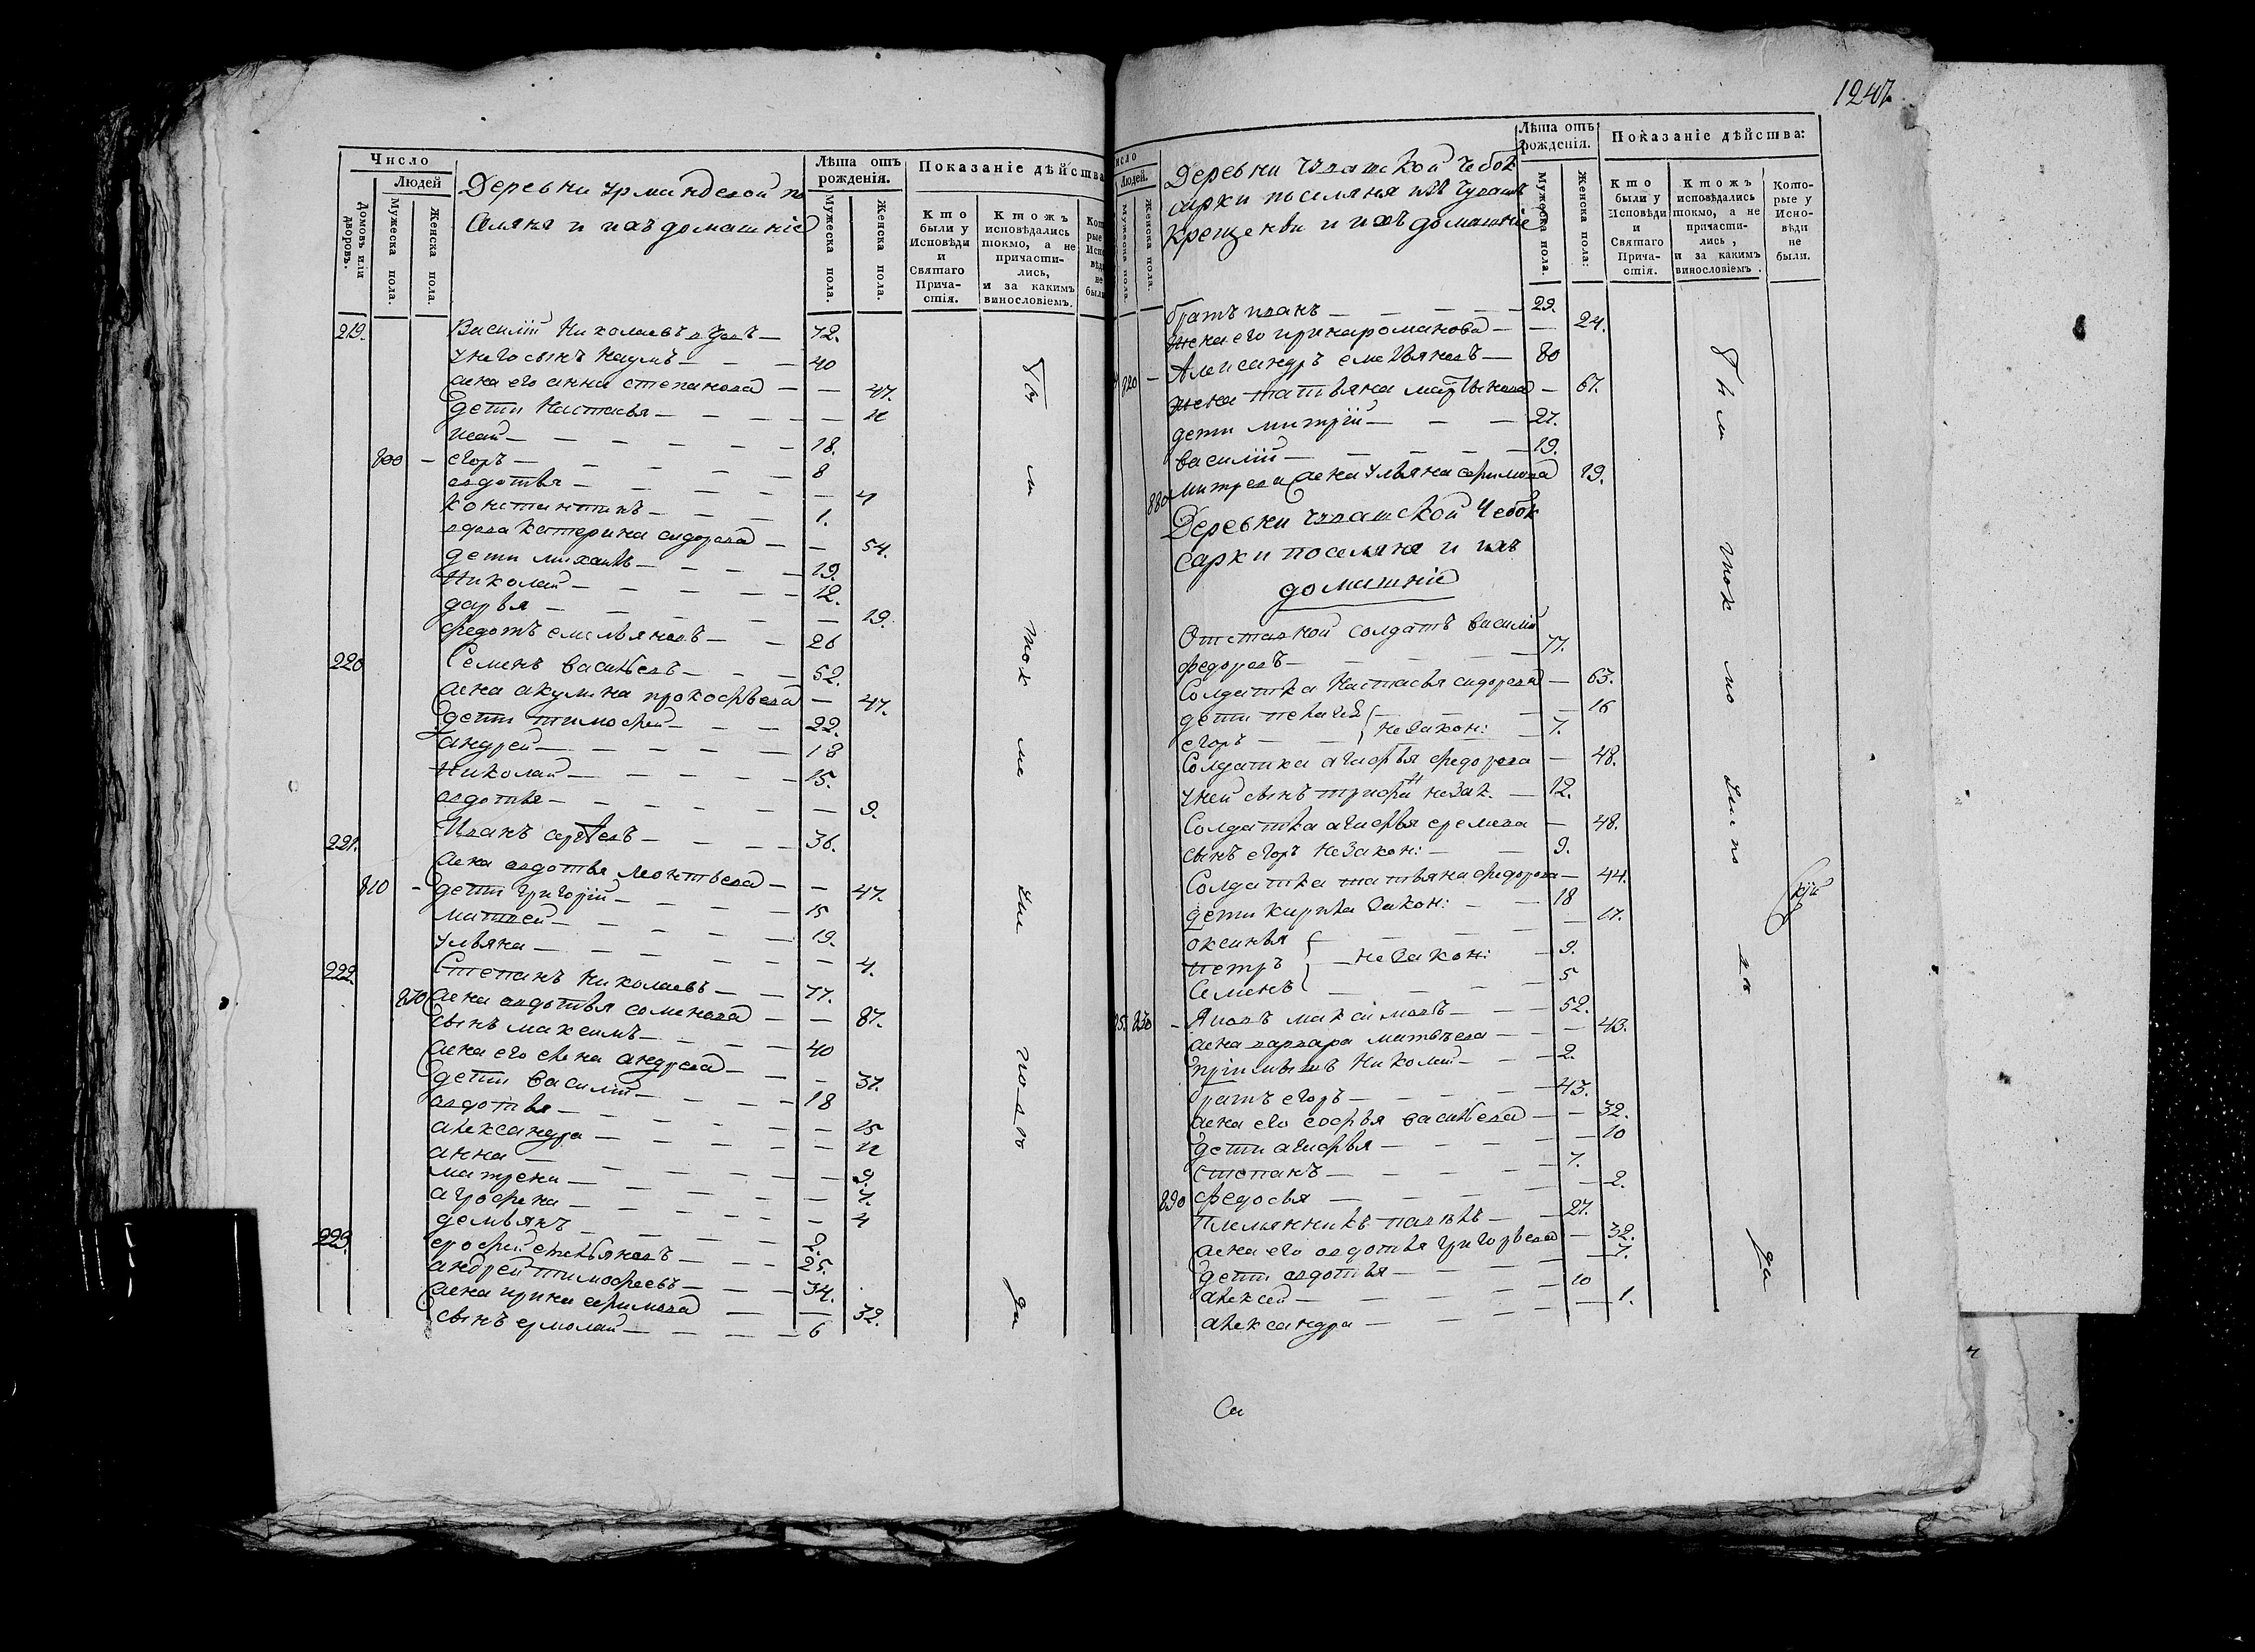 1247.
Число
Людей
Домовъ или дворовъ.
Мужеска пола.
Женска пола.
Деревни Урмандеевой по
селяня и ихъ домашніе
Лѣта отъ рожденія.
Мужеска пола.
Женска пола.
Показаніе дѣйства
Кто были у Исповѣди и Святаго Причастія.
Ктожъ исповѣдались токмо, а не причастились, и за какимъ винословіемъ.
219. Василій Николаевъ вдовъ — 72.
у него сынъ Наумъ — 40
жена его анна степанова — 47.
дети Настасья — 11
исай — 18.
800 — егоръ — 8
авдотья — 4
константинъ — 1.
вдова катерина сидорова — 54.
дети михаилъ — 19.
Николай — 12.
дарья — 19.
федотъ емельяновъ — 26
220 Семенъ васильевъ — 52.
жена акулина прокофьева — 47.
дети тимофей — 22.
андрей — 18
Николай — 15.
авдотья — 9.
221. Иванъ сергеевъ — 36.
жена авдотья леонтьева — 47.
810 — дети григорій — 15
матвей — 19.
ульяна — 4.
222. Степанъ Николаевъ — 77.
870 жена авдотья семенова — 87.
сынъ максимъ — 40
жена его елена андреева — 37.
дети василій — 18
авдотья — 15
александра — 11
анна — 9.
матрена — 7.
агрофена — 4
демьянъ — 2.
223. ерофей емельяновъ — 25.
андрей тимофеевъ — 34.
жена ирина ефимова — 32.
сынъ ермолай — 6
Людей.
Мужеска пола.
Женска пола.
Деревни чувашской чебок
сарки поселяня изъ чувашъ
крещенви и ихъ домашніе
Лѣта отъ рожденія.
Мужеска пола.
Женска пола:
Показаніе дѣйства:
Кто были у Исповѣди и Святаго Причастія.
Ктожъ исповѣдались токмо, а не причастились, и за какимъ винословіемъ.
Которые у Исповѣди не были.
братъ иванъ — 29.
жена его ирина романова — 24.
820 — Александръ емельяновъ — 80
жена татьяна мартынова — 67.
дети митрій — 27.
василій — 19.
880 митрева жена ульяна ефимова 19.
Деревни чувашской Чебок
сарки поселяня и ихъ
домашніе
Отставной солдатъ василій
федоровъ — 77.
Солдатка Настасья сидорова — 63.
дети пелагея — 16
егоръ — незакон: — 7.
Солдатка агафья федорова — 48.
у ней сынъ трифонъ незак. — 12.
Солдатка агафья еремеева — 48.
сынъ егоръ незакон: — 9.
Солдатка татьяна федорова — 44.
дети кирила закон: — 18
оксинья — 17.
петръ — незакон: — 9.
Семенъ — 5
830 — Яковъ максимовъ — 52.
жена варвара матвѣева — 43.
пріимышъ Николай — 2.
братъ егоръ — 43.
жена его софья васильева — 32.
дети агафья — 10
степанъ — 7.
890 федосья — 2.
племянникъ павелъ — 27.
жена его авдотья григорьева — 32.
дети авдотья — 7.
алексей — 10
александра — 1.